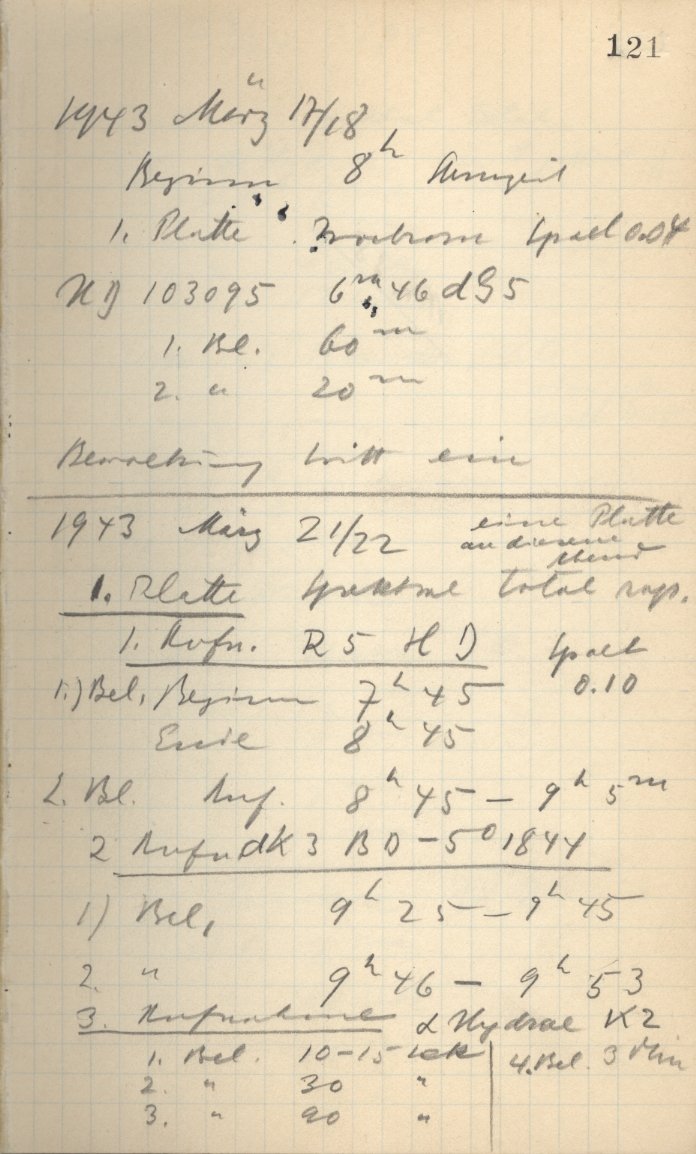 121
1943 März 17/18
Beginn 8h
1. Platte Isochrom Spalt 0.04
HD 103095 6m,46 dG5
1. Bel. 60m
2. " 20m
Bewölkung tritt ein
1943 März 21/22 eine Platte
an diesem
Abend
1. Platte Spektral total rap.
1. Aufn. R 5 HD Spalt
0.10
1.) Bel. Beginn 7h 45
Ende 8h 45
2. Bl. Auf. 8h 45 – 9h 5m
2 Aufn dK3 BD –5° 1844
1) Bel. 9h 25 – 9h 45
2. " 9h 46 – 9h 53
3. Aufnahme α Hydrae K2
1. Bel. 10–15 sek 4. Bel. 3 Min
2. " 30 "
3. " 90 "